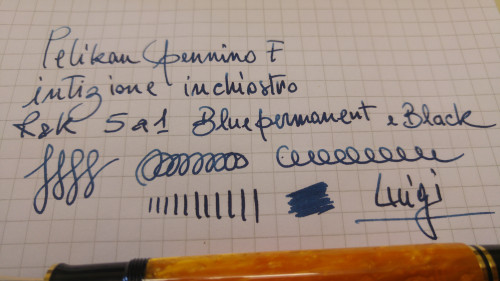 Pelikan (pennino F
intizione inchiostro
R&K 5 a 1 Blue permanent e Black
Luigi